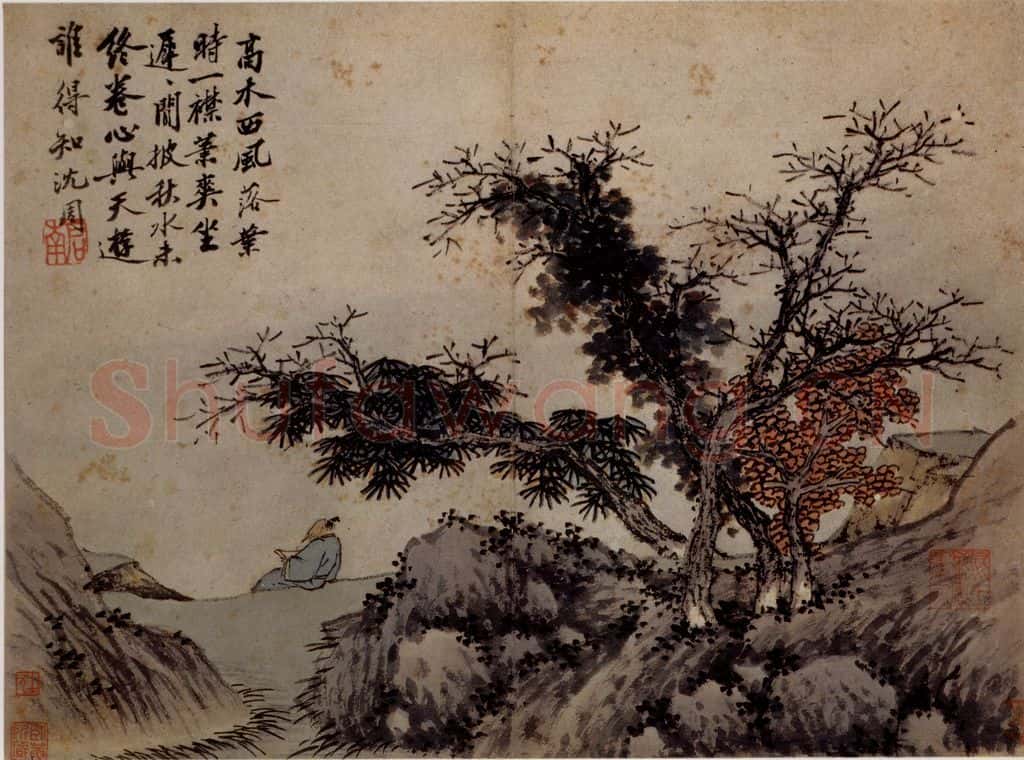 高木西風落葉
時一襟蕭爽坐
遲、閒披秋水未
終卷心與天遊
誰得知沈周
啟南
Shufawang.CN